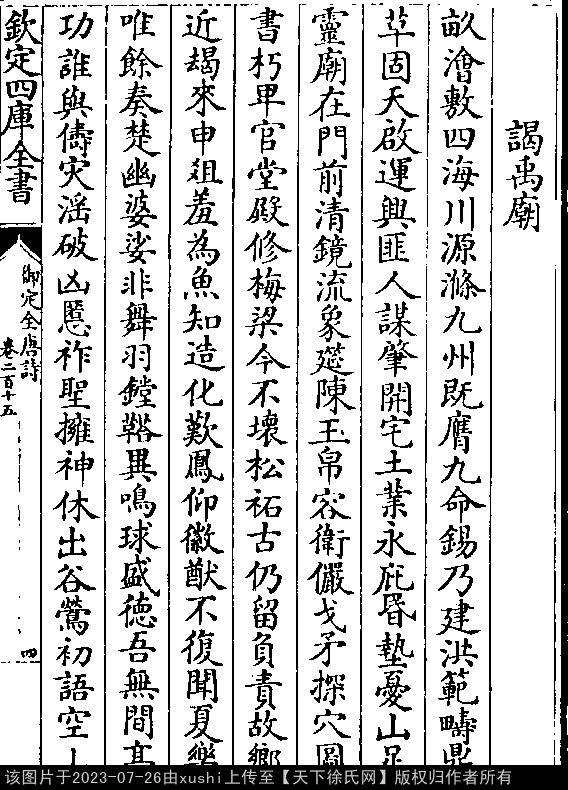 謁禹廟
畝澮敷四海川源滌九州既膺九命錫乃建洪範疇鼎
革固天啟運興匪人謀肇開宅土業永庇昏墊憂山足
靈廟在門前清鏡流象筵陳玉帛容衛儼戈矛探穴圖
書朽卑宮堂殿修梅梁今不壞松祏古仍留負責故鄉
近朅來申俎羞為魚知造化歎鳳仰徽猷不復聞夏樂
唯餘奏楚幽婆娑非舞羽鏜鞳異鳴球盛德吾無間高
功誰與儔災淫破凶慝祚聖擁神休出谷鶯初語空
欽定四庫全書
御定全唐詩
卷二百十五
四
该图片于2023-07-26由xushi上传至【天下徐氏网】版权归作者所有